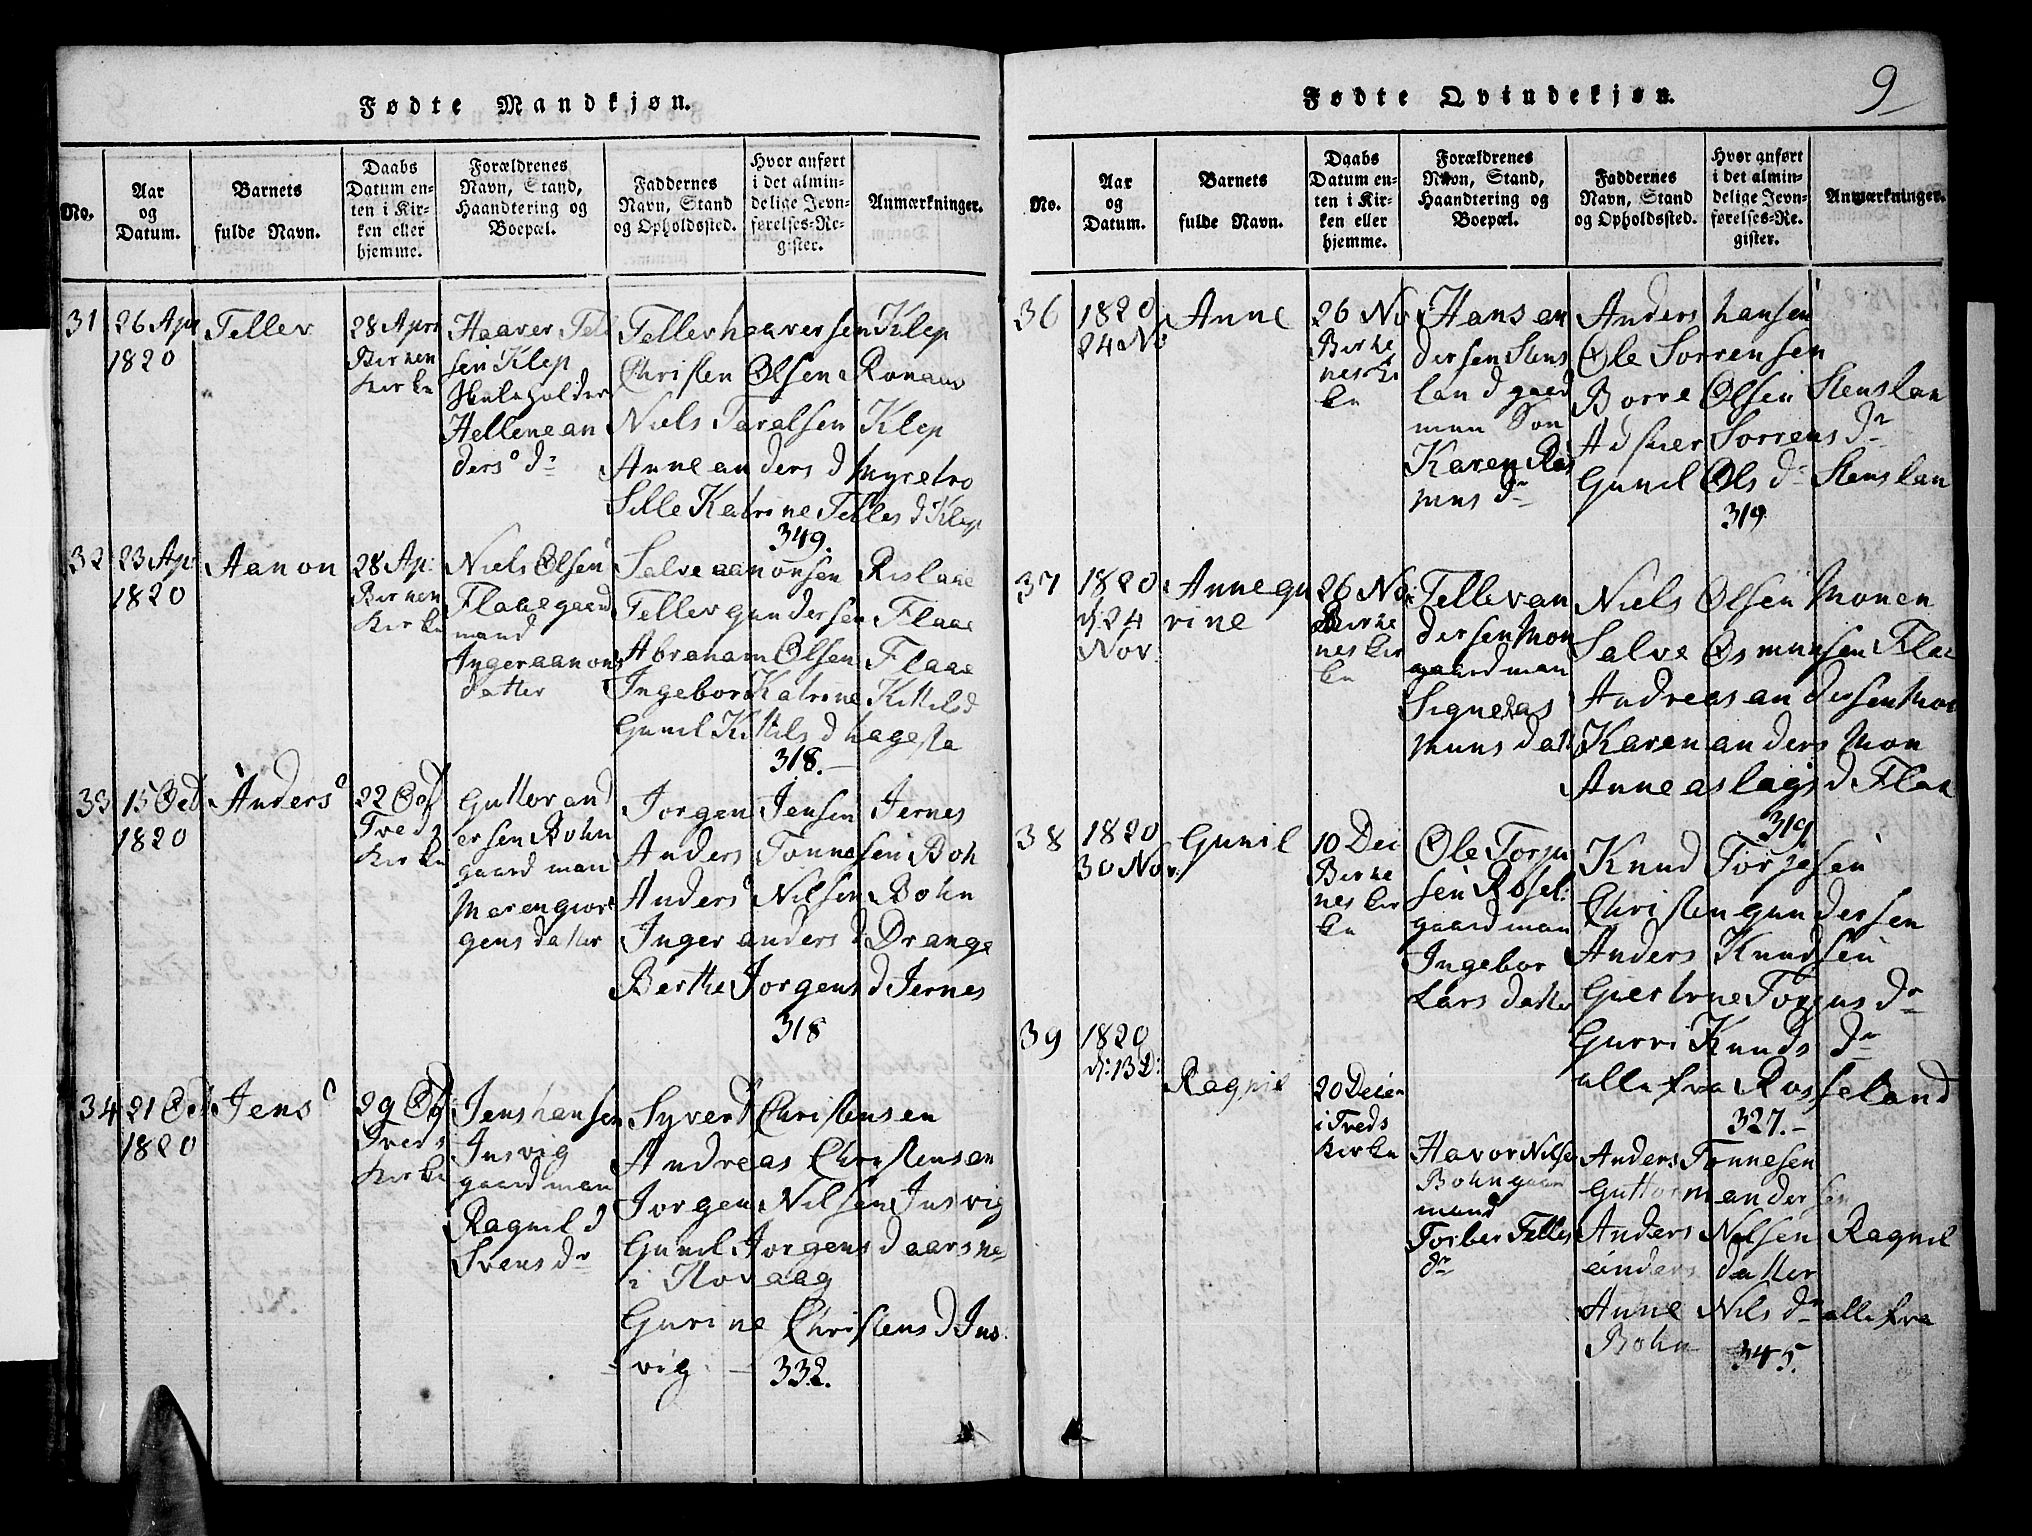 Fødte Mandkjøn.
No.
Aar
og
Datum.
Barnets
fulde Navn.
Daabs
Datum en-
ten i Kir-
ken eller
hjemme.
Forældrenes
Navn, Stand,
Haandtering og
Boepæl.
Faddernes
Navn, Stand
og Opholdssted.
Hvor anført
i det almin-
delige Jevn-
førelses-Re-
gister.
Anmærkninger.
31
26 Apr
1820
Tellev
28 Apri
Birken
kirke
Haaver Tell
sen Klep
Skuleholder
Hellene an
ders d
Tellev haaversen Klep
Christen Olsen
Niels Tarelsen Klep
Anne anders d Myrebro
Sille Katrine Telles d Klep
349.
32
23 Apr
1820
Aanon
28 Ap:
Birnen
kirke
Niels Olsen
Flaae gaard
mand
Inger aanons
datter
Salve aanonsen Rislane
Tellev gundersen Flaae
Abraham Olsen Flaae
Ingebor Katrine Kittilsd
Gunil Kittils d hagesta
318.
33
15 Oct
1820
Anders
22 Oct
Treds
kirke
Guttor and
ersen Bohn
gaard man
Maren giør
gens datter
Jorgen Jensen Jernes
Anders Tonnesen Boh
Anders Nilsen Bohn
Inger anders d Drange
Berthe Jorgens d Jernes
318
34
21 Oct
1820
Jens
29 Oct
Treds
kirke
Jens hansen
Insvig
gaard man
Ragnild
Svens dr
Syverd Christensen
Andreas Christensen
Jorgen Nilsen Insvig
Gunil Jorgens d aarsne
i Hovaag
Gurine Christens d Ins
vig
332.
Fødte Qvindekjøn.
9
No.
Aar
og
Datum.
Barnets
fulde Navn.
Daabs
Datum en-
ten i Kir-
ken eller
hjemme.
Forældrenes
Navn, Stand,
Haandtering og
Boepæl.
Faddernes
Navn, Stand
og Opholdssted.
Hvor anført
i det almin-
delige Jevn-
førelses-Re-
gister.
Anmærkninger.
36
1820
24 No
Anne
26 No
Birke
nes ki
ke
Hans an
dersen Stens
land gaard
man Son
Karen Ras
mus dr
Anders hansen
Ole Sorrensen
Borre Olsen Stenslan
Sorrens dr
Gunil Ols d Stenslan
319
37
1820
d 24
Nov
Anne gu
rine
26 No
Birke
nes kir
ke
Tellev an
dersen Mon
gaard man
Signe Ras
muns datt
Niels Olsen Monen
Salve Osmunsen Flae
Andreas andersen Mon
Karen anders Mon
Anne aslags d Flae
319
38
1820
30 Nov
Gunil
10 Dec
Birke
nes kir
ke
Ole Torju
sen Rosel:
gaard man
Ingebor
Lars datte
Knud Torjesen
Christen gundersen
Anders Knudsen
Giertrue Torjus dr
Gurri Knuds dr
alle fra Rosseland
327.-
39
1820
d: 13 D:
Ragnil
20 Decem
i Treds
kirke
Havor Nilse
Bohn gaar
mand
Torber Telles
dr
Anders Tonnesen
Guttorm andersen
Anders Nilsen Ragnil
anders datter
Anne Nils dr alle fra
Bohn
345.